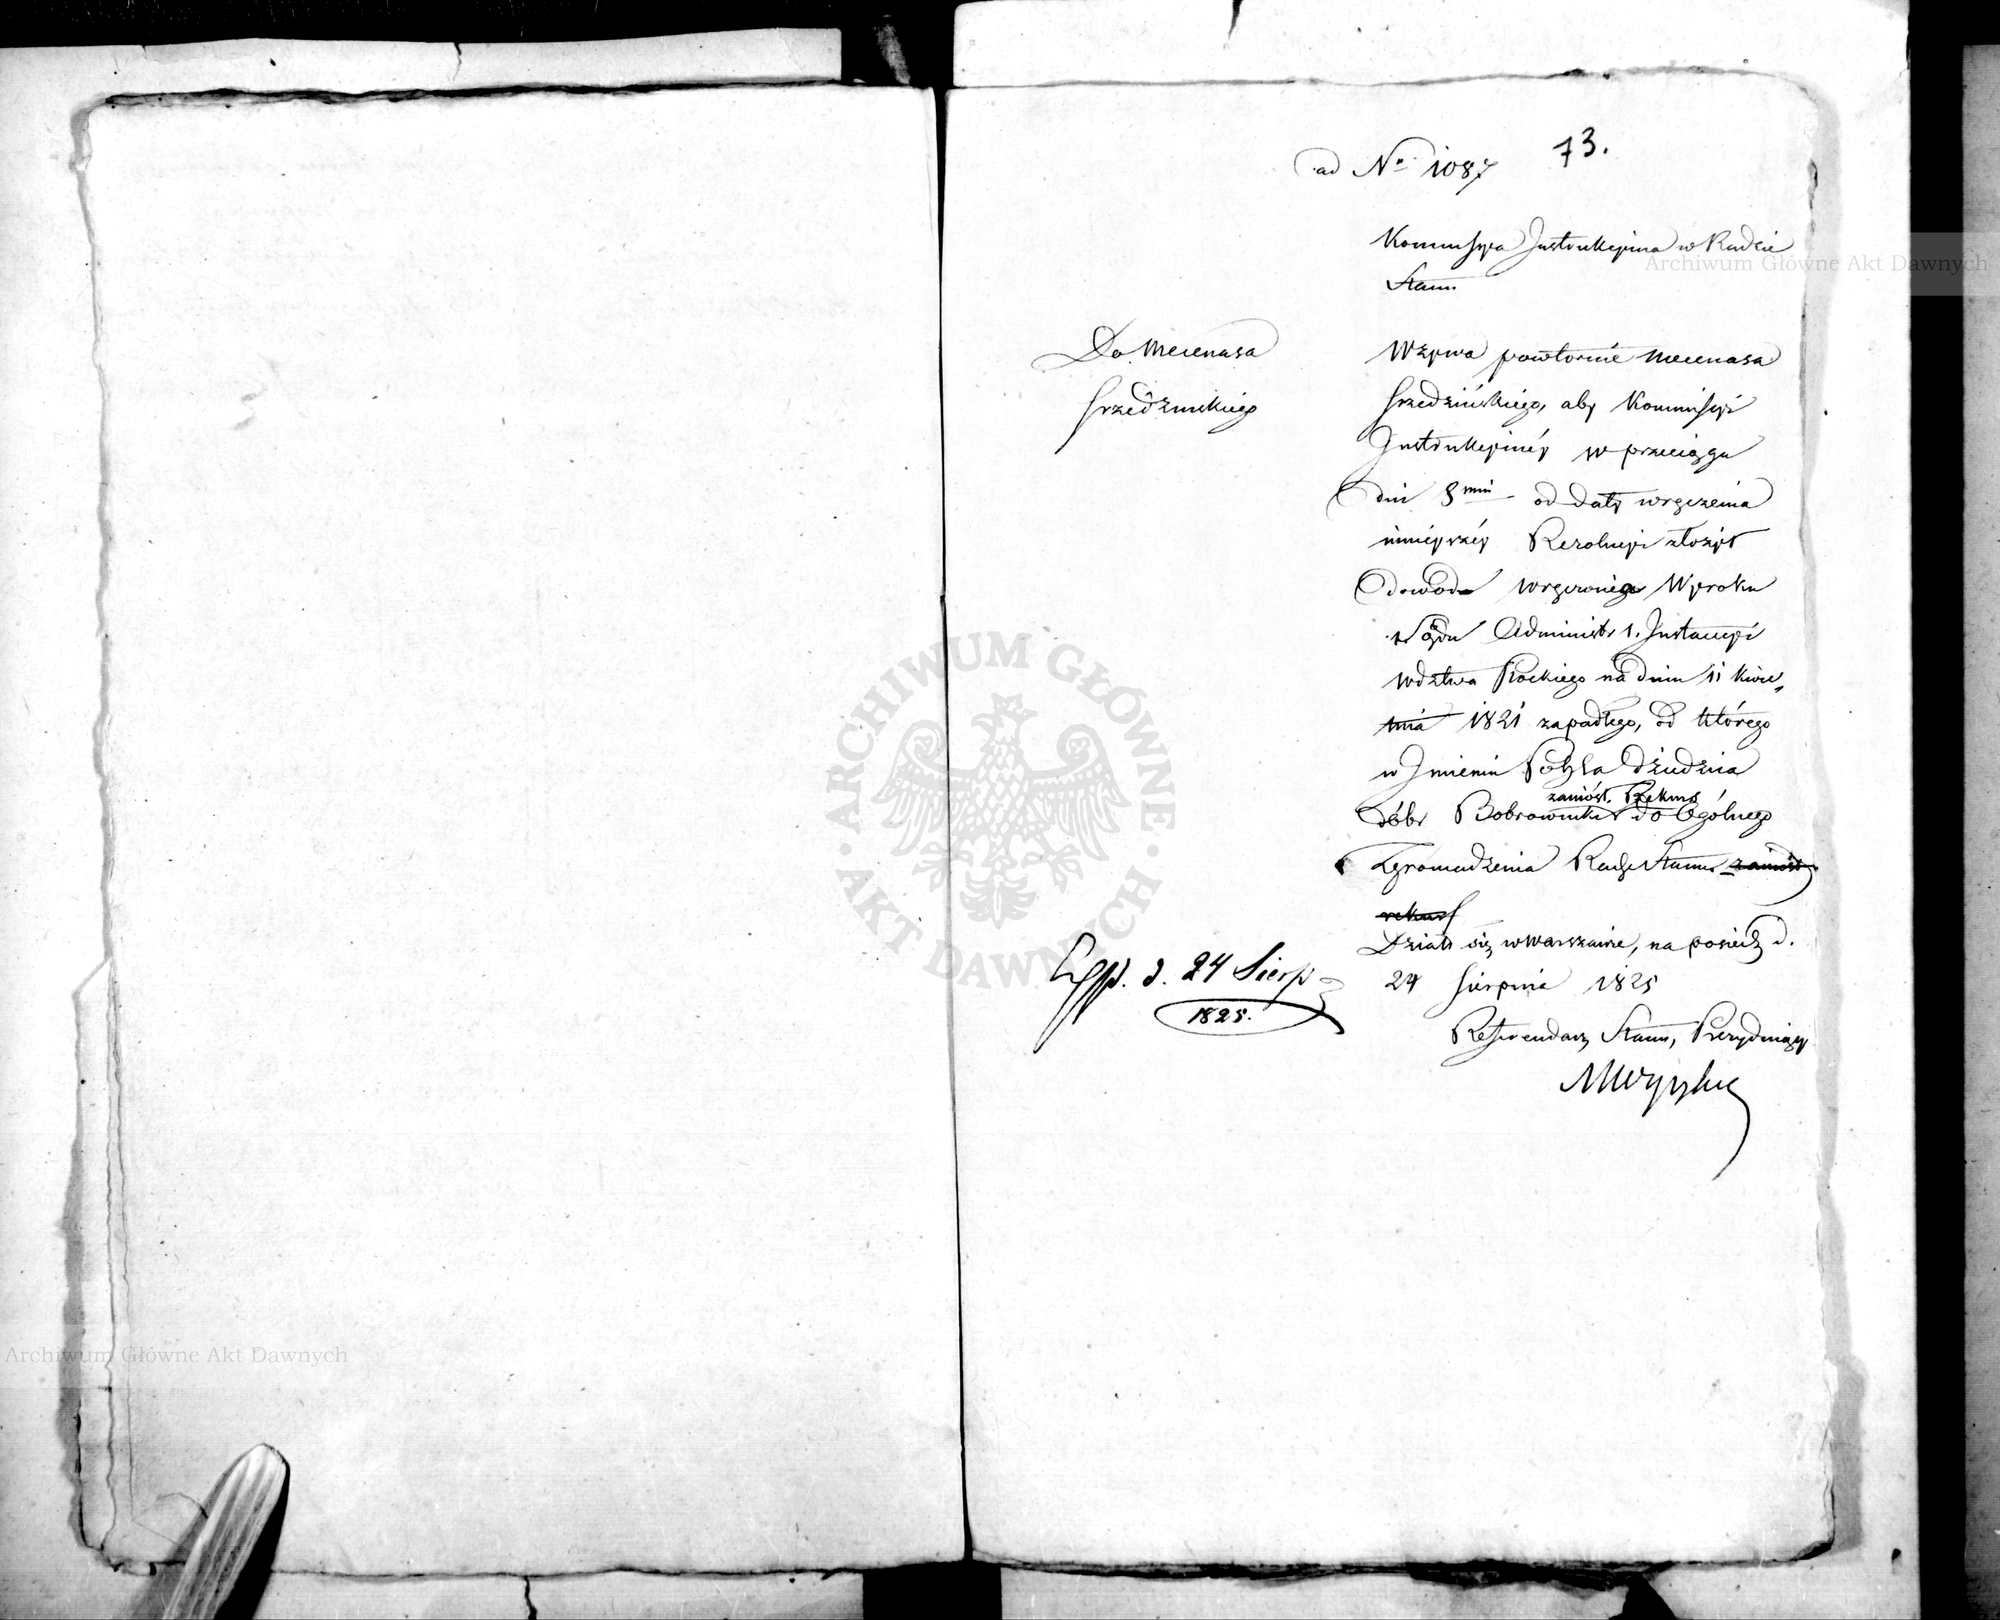 ad No 1087
73.
Kommissya Instrukcyina w Radzie
Stanu
Do Mecenasa
Srzedzinskiego
Wzywa powtornie Mecenasa
Srzedzińskiego, aby Kommissyi
Instrukcyinéy w przeciągu
dni 8miu od daty wręczenia
ninieyszéy Rezolucyi złożył
dowod wręczonego Wyroku
Sądu Administr 1. Instancyi
Wdztwa Płockiego na dniu 11 Kwie„
tnia 1821 zapadłego, od którego
w Imieniu Pohla Dziedzica
zaniósł. Rekurs
dóbr Bobrowniki do Ogólnego
Zgromadzenia Rady Stanu zaniósł
rekurs
Działo się w Warszawie, na posiedz d.
24 Sierpnia 1825
Exp. d. 24 Sierp
1825.
Referendarz Stanu, Prezyduiący
Archiwum Główne Akt Dawnych
ARCHIWUM GŁÓWNE
AKT DAWNYCH
Archiwum Główne Akt Dawnych